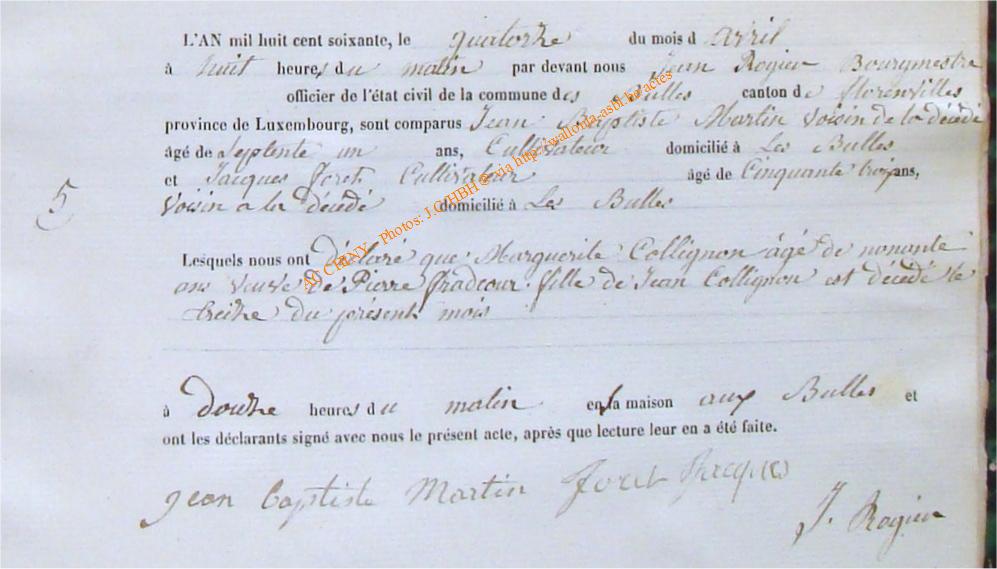 L'AN mil huit cent soixante, le quatorze du mois d avril
à huit heures du matin par devant nous Jean Rogier Bourgmestre
officier de l'état civil de la commune des Bulles canton de florenvilles
province de Luxembourg, sont comparus Jean Baptiste Martin voisin de la décédé
âgé de septente un ans, Cultivateur domicilié à Les Bulles
et Jacques Foret Cultivateur âgé de Cinquante trois ans,
5 voisin a la décédé domicilié à Les Bulles
Lesquels nous ont déclaré que Marguerite Collignon âgé de nonante
ans veuve de Pierre fradcour fille de Jean Collignon est décédé le
treize du présent mois
à douze heures du matin en la maison aux Bulles et
ont les déclarants signé avec nous le présent acte, après que lecture leur en a été faite.
jean baptiste Martin Foret Jacques
J. Rogier
AC CHINY - Photos: J.C/HBH © via http://wallonia-asbl.be/actes